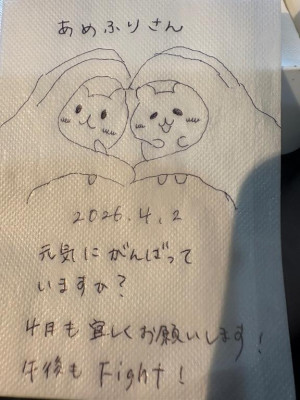 あめふりさん
2026.4.2
元気にがんばって
いますか？
4月も宜しくお願いします！
午後も Fight！